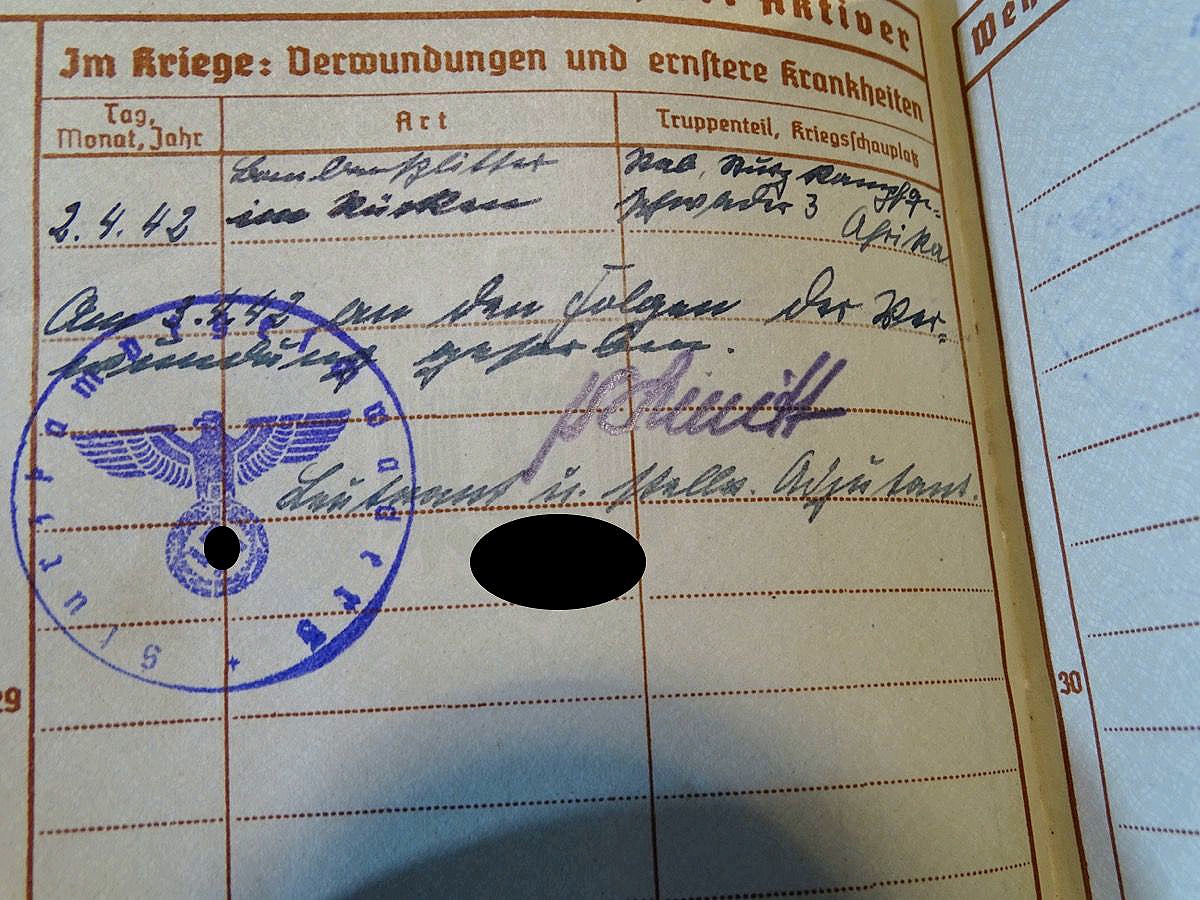 Aktiver
Im Kriege: Verwundungen und ernstere Krankheiten
Tag,
Monat, Jahr
Art
Truppenteil, Kriegsschauplatz
Bombensplitter
im Rücken
2.4.42
Stab, Sturzkampfge-
schwader 3
Afrika
Am 3.4.42 an den Folgen der Ver-
wundung gestorben.
Schmitt
Leutnant u. stellv. Adjutant.
29
30